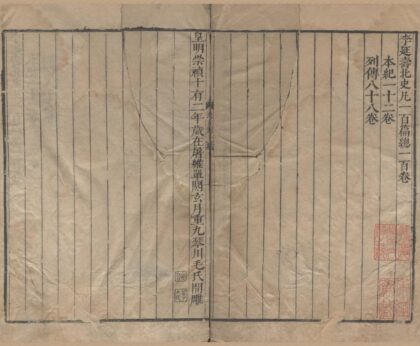 李延壽北史凡一百篇總一百卷
本紀一十二卷
列傳八十八卷
皇明崇禎十有二年歲在屠維單閼玄月重九琴川毛氏開雕